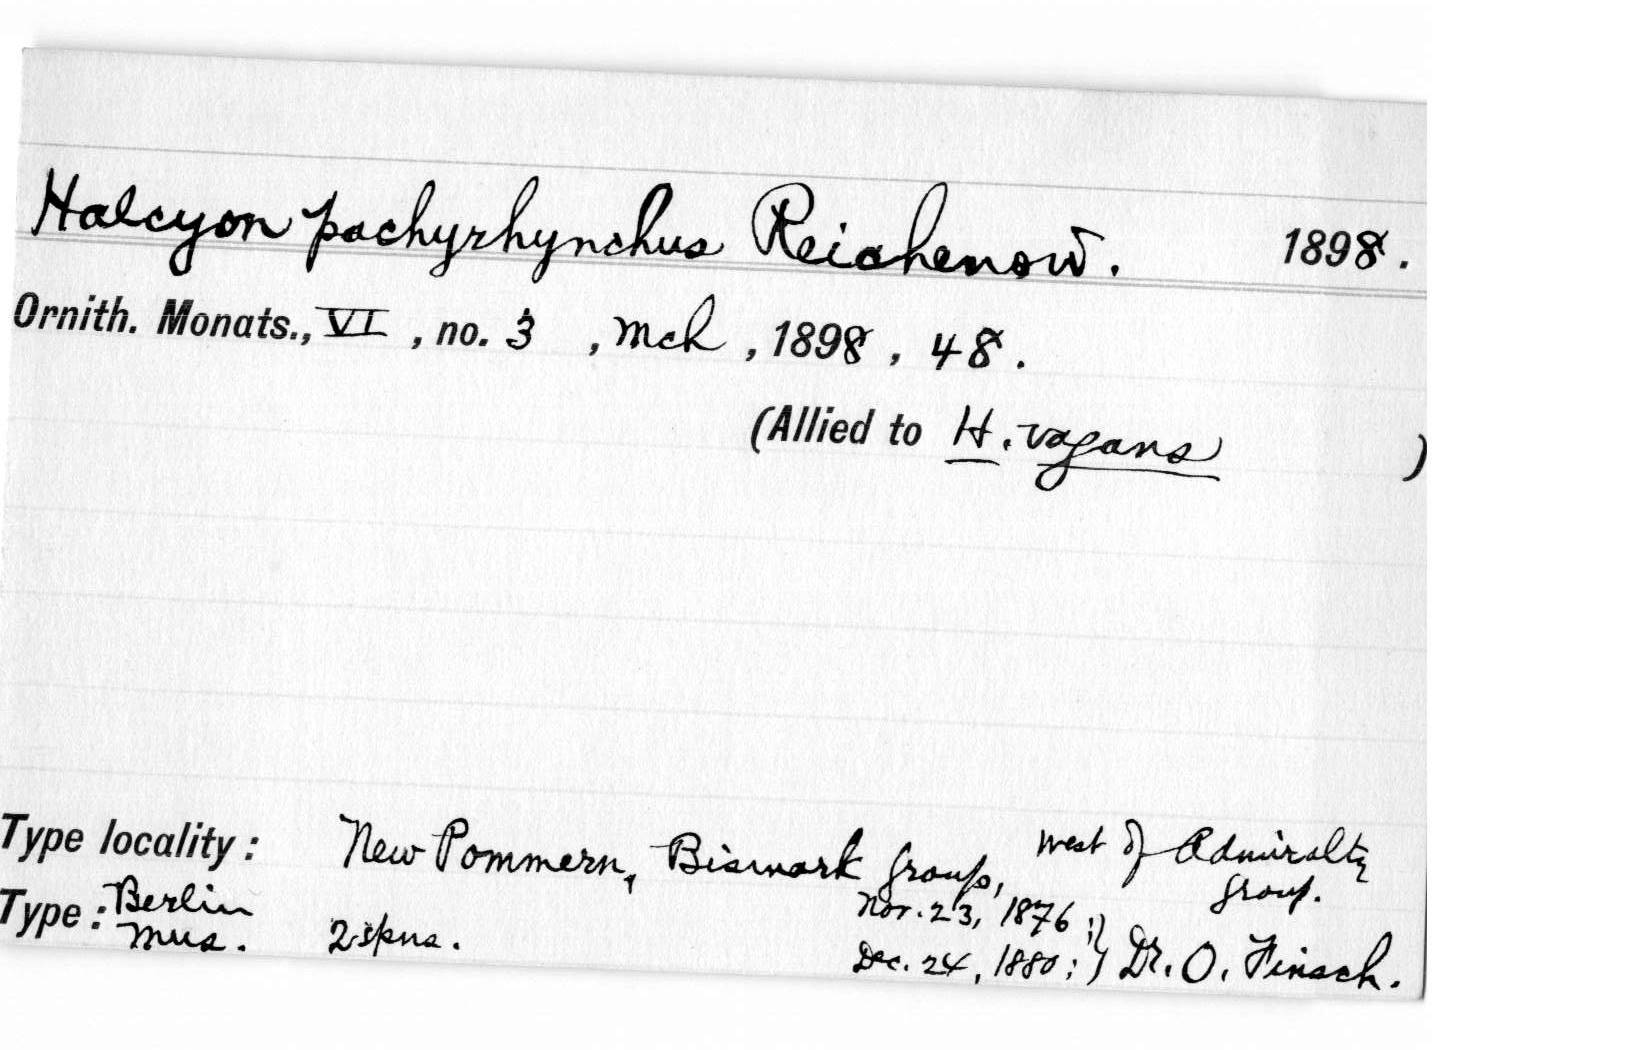 Halcyon pachyrhynchus Reichenow. 1898.
Ornith. Monats., VI, no. 3, Mch, 1898, 48.
(Allied to H. vagans)
Type locality: New Pommern, Bismark group, west of Admiralty
group.
Type: Berlin Nov. 23, 1876;}
Mus. 2 spns. Dec. 24, 1880;} Dr. O. Finsch.